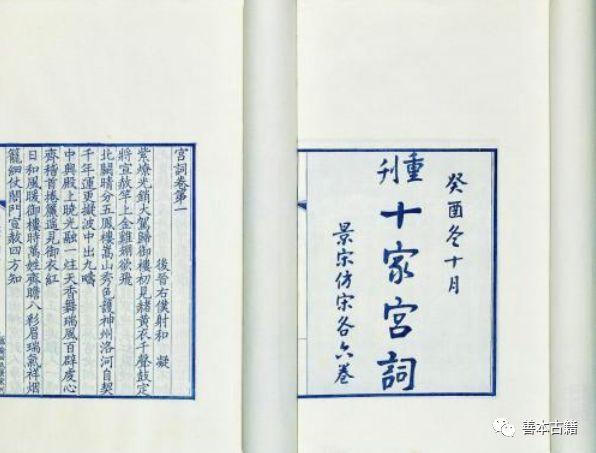 癸酉冬十月
重刊
十家宮詞
景宋仿宋各六卷
宮詞卷第一
後晉右僕射和 凝
紫燎光銷大駕歸御樓初見赭黃衣千聲鼓定
將宣赦竿上金雞翅欲飛
北闕晴分五鳳樓嵩山秀色護神州洛河自契
千年運更擬波中出九疇
中興殿上曉光融一炷天香舞瑞風百辟虔心
齊稽首捲簾遥見御衣紅
日和風暖御樓時萬姓齊瞻八彩眉瑞氣祥烟
籠細仗閤門宣赦四方知
善本古籍